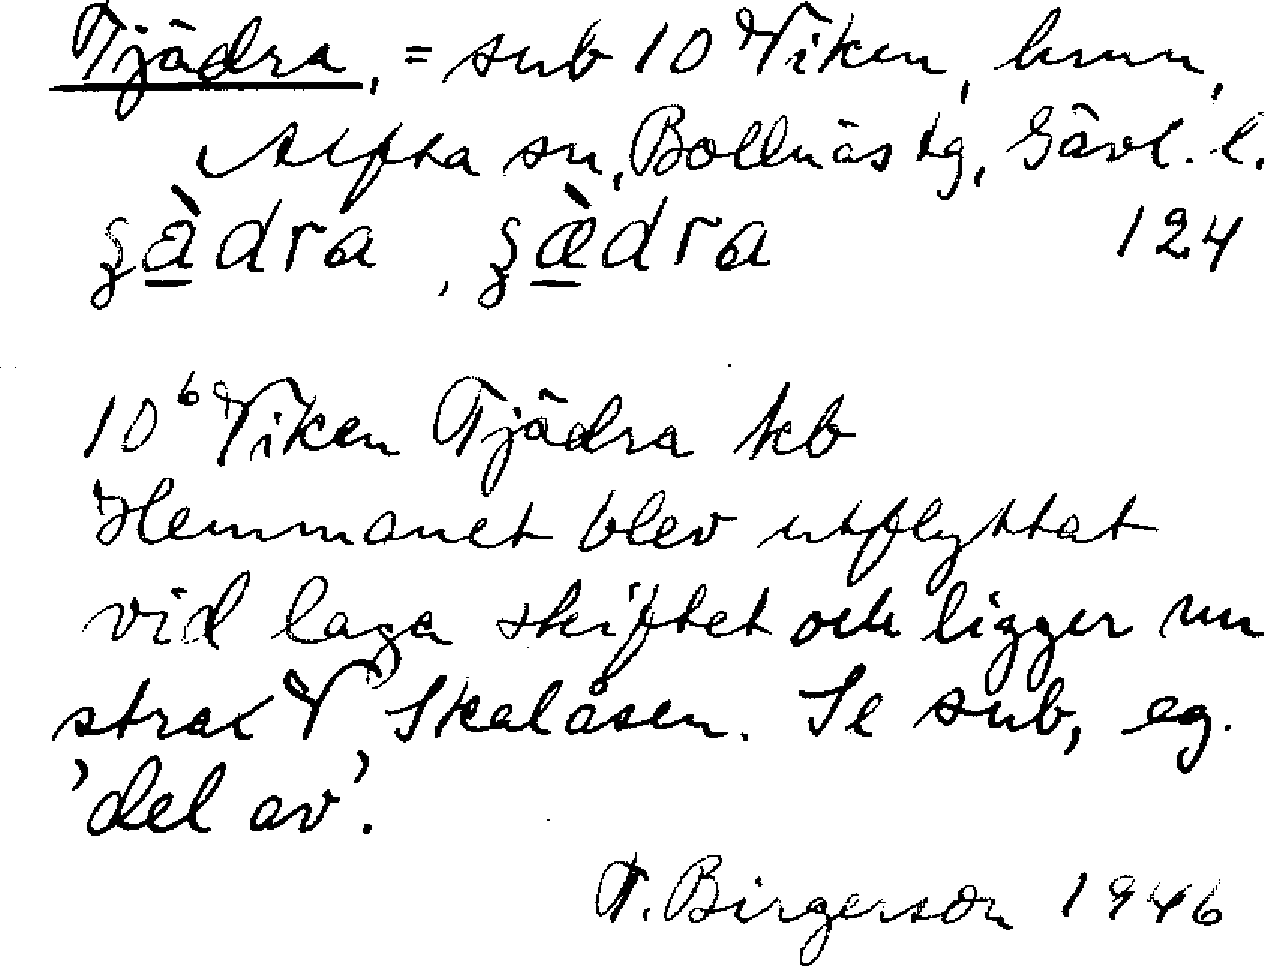 Tjädra, = sub 10 Viken, hmn,
Alfta sn, Bollnäs tg, Gävl. l.
ʒàdra, ʒæ̀dra 124
10⁶ Viken Tjädra kb
Hemmanet blev utflyttat
vid laga skiftet och ligger nu
strax V Skalåsen. Se sub, eg.
'del av'.
T. Birgerson 1946